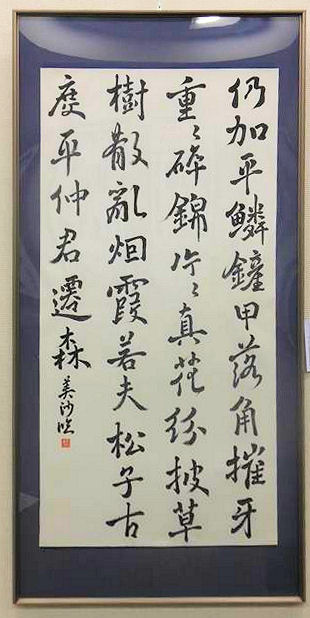 仍加平鱗鏟甲落角摧牙
重〻碎錦片〻真花紛披草
樹散亂烟霞若夫松子古
度平仲君遷森
美沙臨